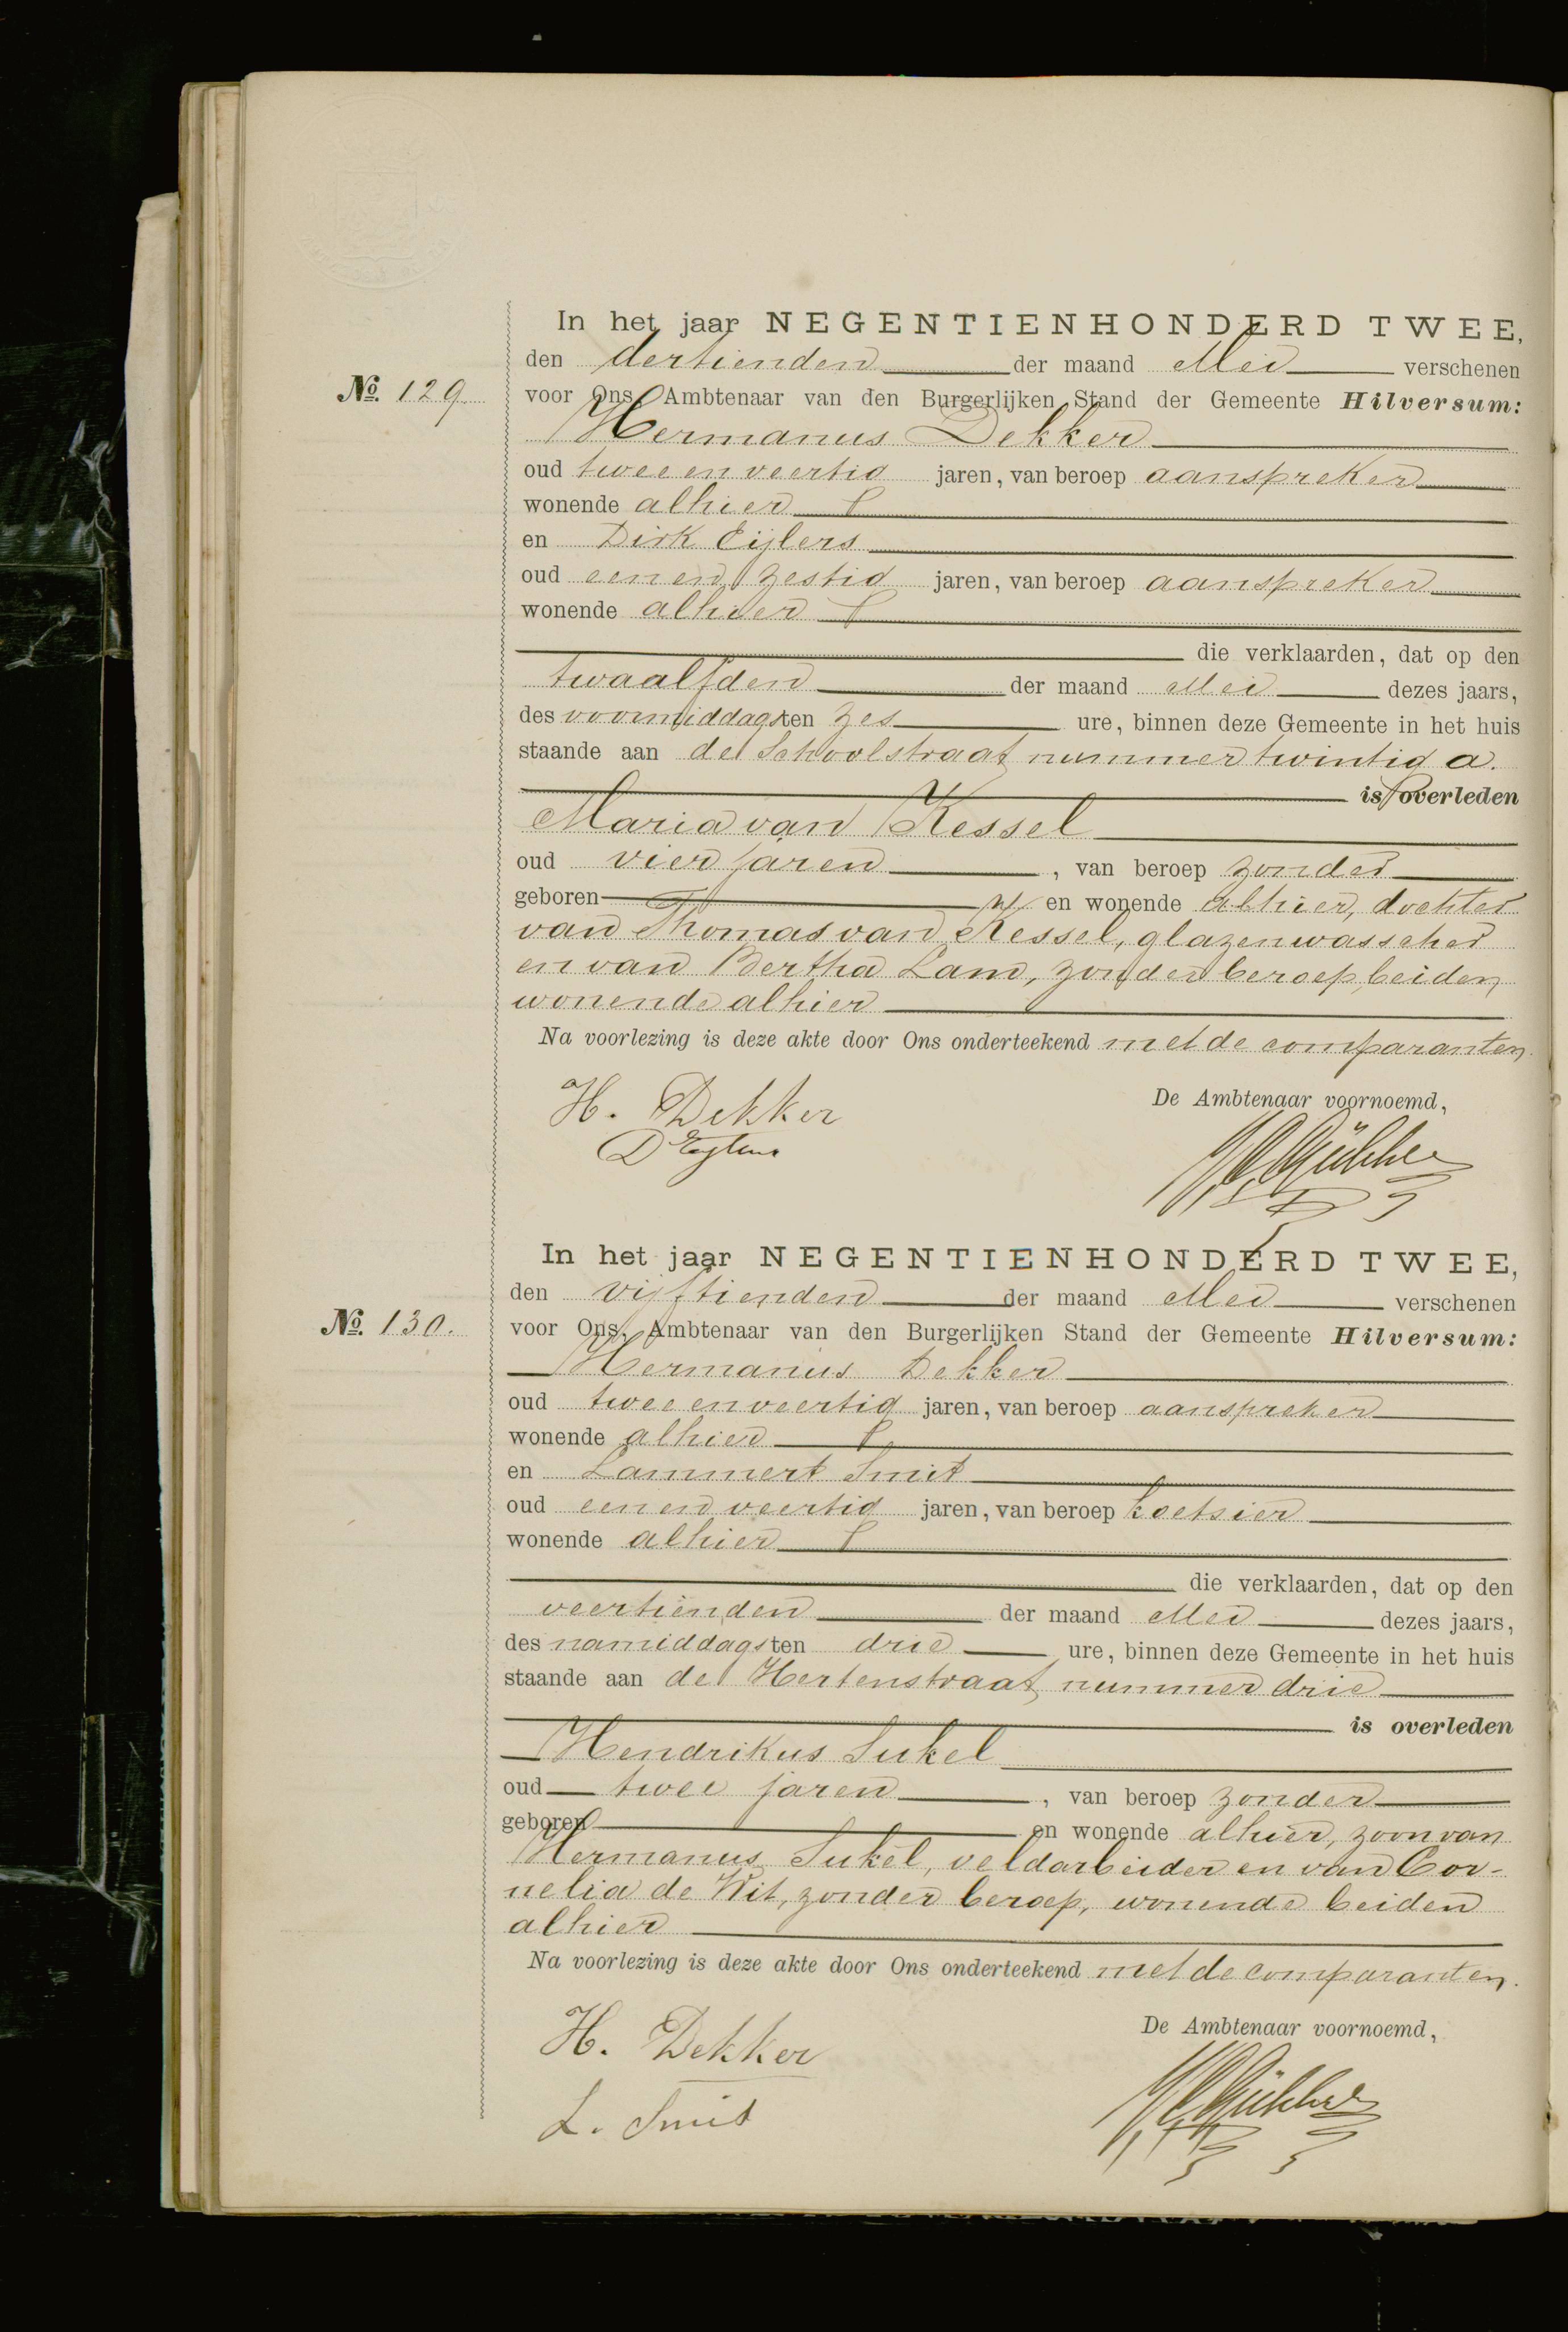 In het jaar NEGENTIENHONDERD TWEE,
den dertienden der maand Mei verschenen
No. 129 voor Ons, Ambtenaar van den Burgerlijken Stand der Gemeente Hilversum:
Hermanus Dekker
oud twee en veertig jaren, van beroep aanspreker
wonende alhier
en Dirk Eijlers
oud een en zestig jaren, van beroep aanspreker
wonende alhier
die verklaarden, dat op den
twaalfden der maand Mei dezes jaars,
des voormiddags ten zes ure, binnen deze Gemeente in het huis
staande aan de Schoolstraat nummer twintig a.
is overleden
Maria van Kessel
oud vier jaren, van beroep zonder
geboren en wonende alhier, dochter
van Thomas van Kessel, glazenwasscher
en van Bertha Lam, zonder beroep, beiden
wonende alhier
Na voorlezing is deze akte door Ons onderteekend met de comparanten.
De Ambtenaar voornoemd,
H. Dekker
In het jaar NEGENTIENHONDERD TWEE,
den vijftienden der maand Mei verschenen
No. 130. voor Ons, Ambtenaar van den Burgerlijken Stand der Gemeente Hilversum:
Hermanus Dekker
oud twee en veertig jaren, van beroep aanspreker
wonende alhier
en Lammert Smit
oud een en veertig jaren, van beroep koetsier
wonende alhier
die verklaarden, dat op den
veertienden der maand Mei dezes jaars,
des namiddags ten drie ure, binnen deze Gemeente in het huis
staande aan de Hertenstraat nummer drie
is overleden
Hendrikus Sukel
oud twee jaren, van beroep zonder
geboren en wonende alhier, zoon van
Hermanus Sukel, veldarbeider en van Cor-
nelia de Wit, zonder beroep, wonende beiden
alhier
Na voorlezing is deze akte door Ons onderteekend met de comparanten.
De Ambtenaar voornoemd,
H. Dekker
L. Smit